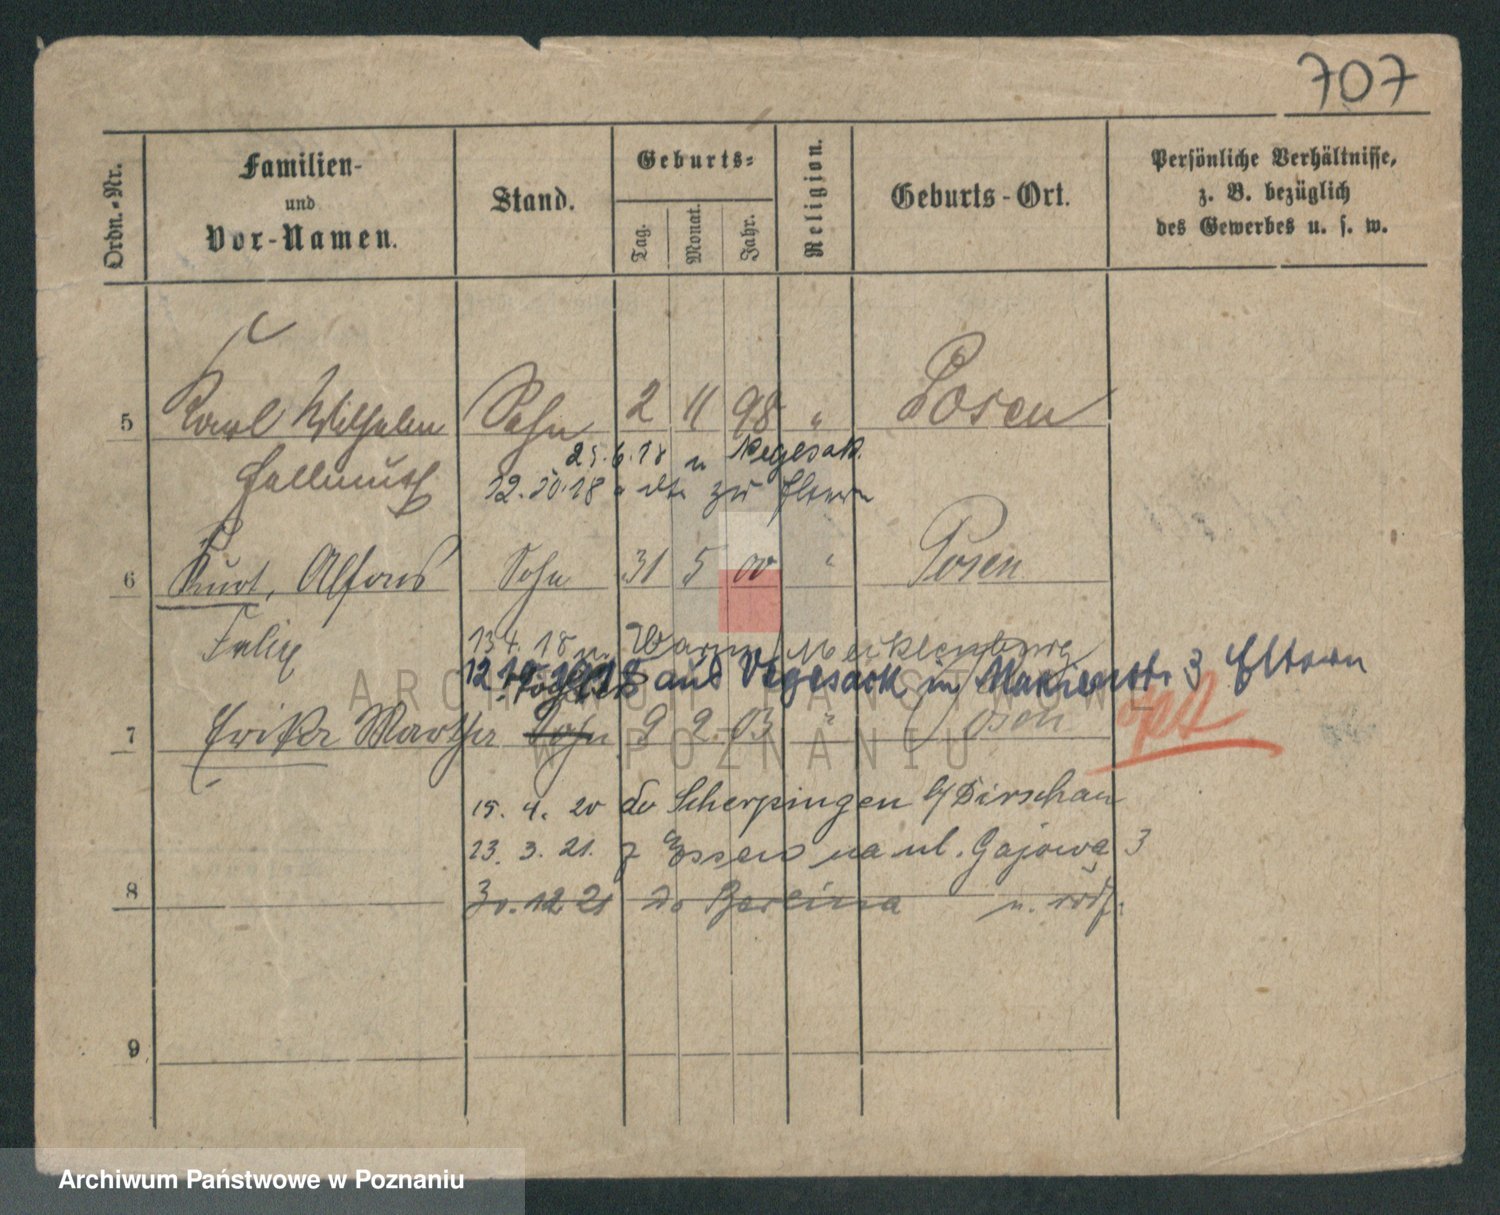 707
Ordn.-Nr.
Familien-
und
Vor-Namen.
Stand.
Geburts-
Tag.
Monat.
Jahr.
Religion.
Geburts-Ort.
Persönliche Verhältnisse,
z. B. bezüglich
des Gewerbes u. s. w.
5 Karl Wilhelm Sohn 2 11 98 " Posen
Hellmuth
25.6.18 n Vegesack
12.10.18 zu Eltern
6 Kurt, Alfons Sohn 31 5 00 " Posen
Felix
13 4. 18 n. Waren Mecklenburg
12 10 1918 aus Vegesack in Marienstr 3 Eltern
Tochter
7 Erika Martha Sohn 9 2 03 " Posen
15. 4. 20 do Scherpingen b/Dirschau
23. 3. 21. z Essen na ul. Gajowa 3
8 30. 12 21 do Berlina
9
ARCHIWUM PAŃSTWOWE
W POZNANIU
Archiwum Państwowe w Poznaniu